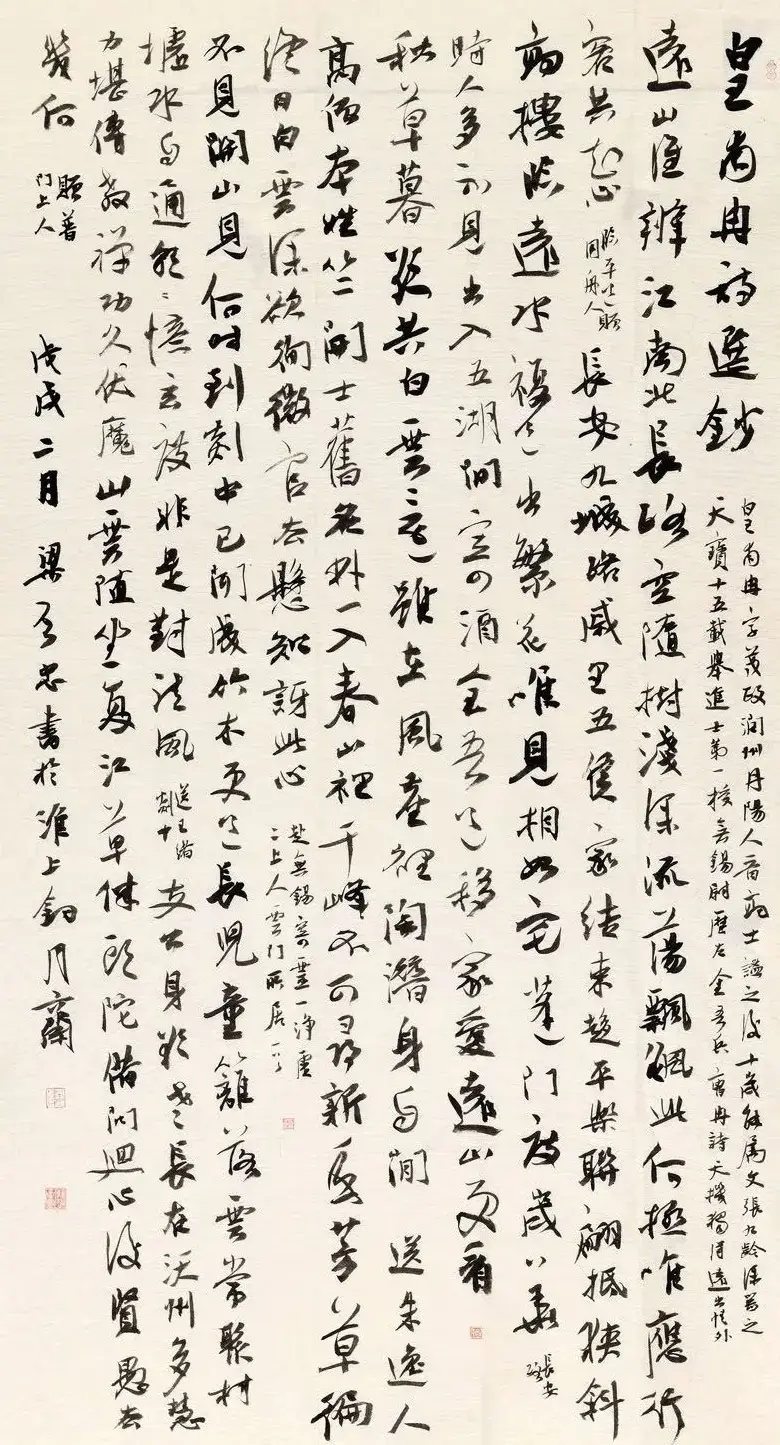 皇甫冉詩選鈔
皇甫冉字茂政潤州丹陽人晉高士謐之後十歲能屬文張九齡深器之
天寶十五載舉進士第一授無錫尉歷左金吾兵曹冉詩天機獨得遠出情外
遠山誰辨江南北長路空隨樹淺深流蕩飄飄此何極唯應行
客共知心 臨平道贈同舟人 長安九城路戚里五侯家結束趨平樂聯翩抵狹斜
高樓臨遠水複道出繁花唯見相如宅蓬門度歲華 長安路
時人多不見出入五湖間寄酒全吾道移家愛遠山更看
秋草暮欲共白雲還雖在風塵裡陶潛身自閒 送朱逸人
高僧本姓竺開士舊名林一入春山裡千峰不可尋新年芳草遍
終日白雲深欲徇微官去懸知訝此心 赴無錫寄靈一淨虛二上人雲門所居
不見關山見何時到剡中已聞成竹木更道長兒童籬落雲常聚村
墟水自通朝〻憶玄度非是對清風 送王緒剡中 支公身欲老長在沃州多慧
力堪傳教禪功久伏魔山雲隨坐夏江草伴頭陀借問迴心後賢愚去
幾何 題普門上人 戊戌二月 梁忠書於淮上釣月齋